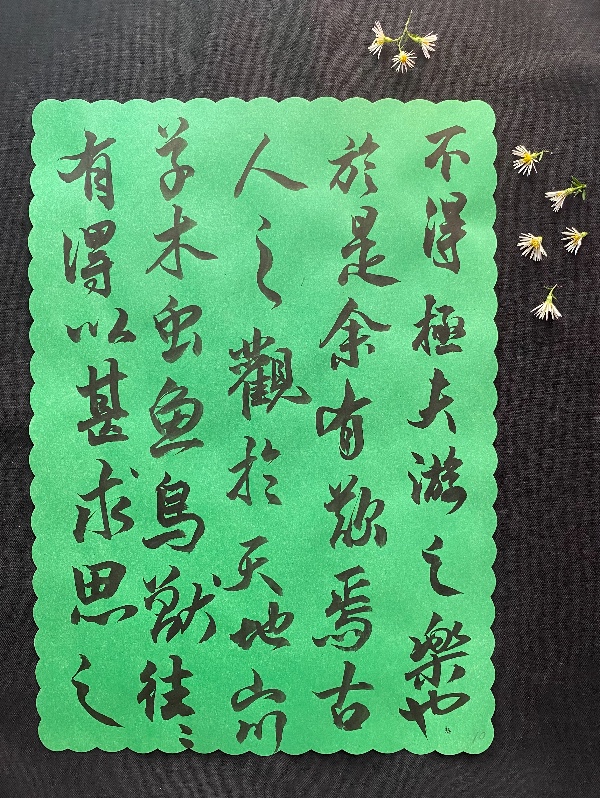 不得極夫游之樂也
於是余有歎焉古
人之觀於天地山川
草木虫魚鳥獸往〻
有得以甚求思之
10